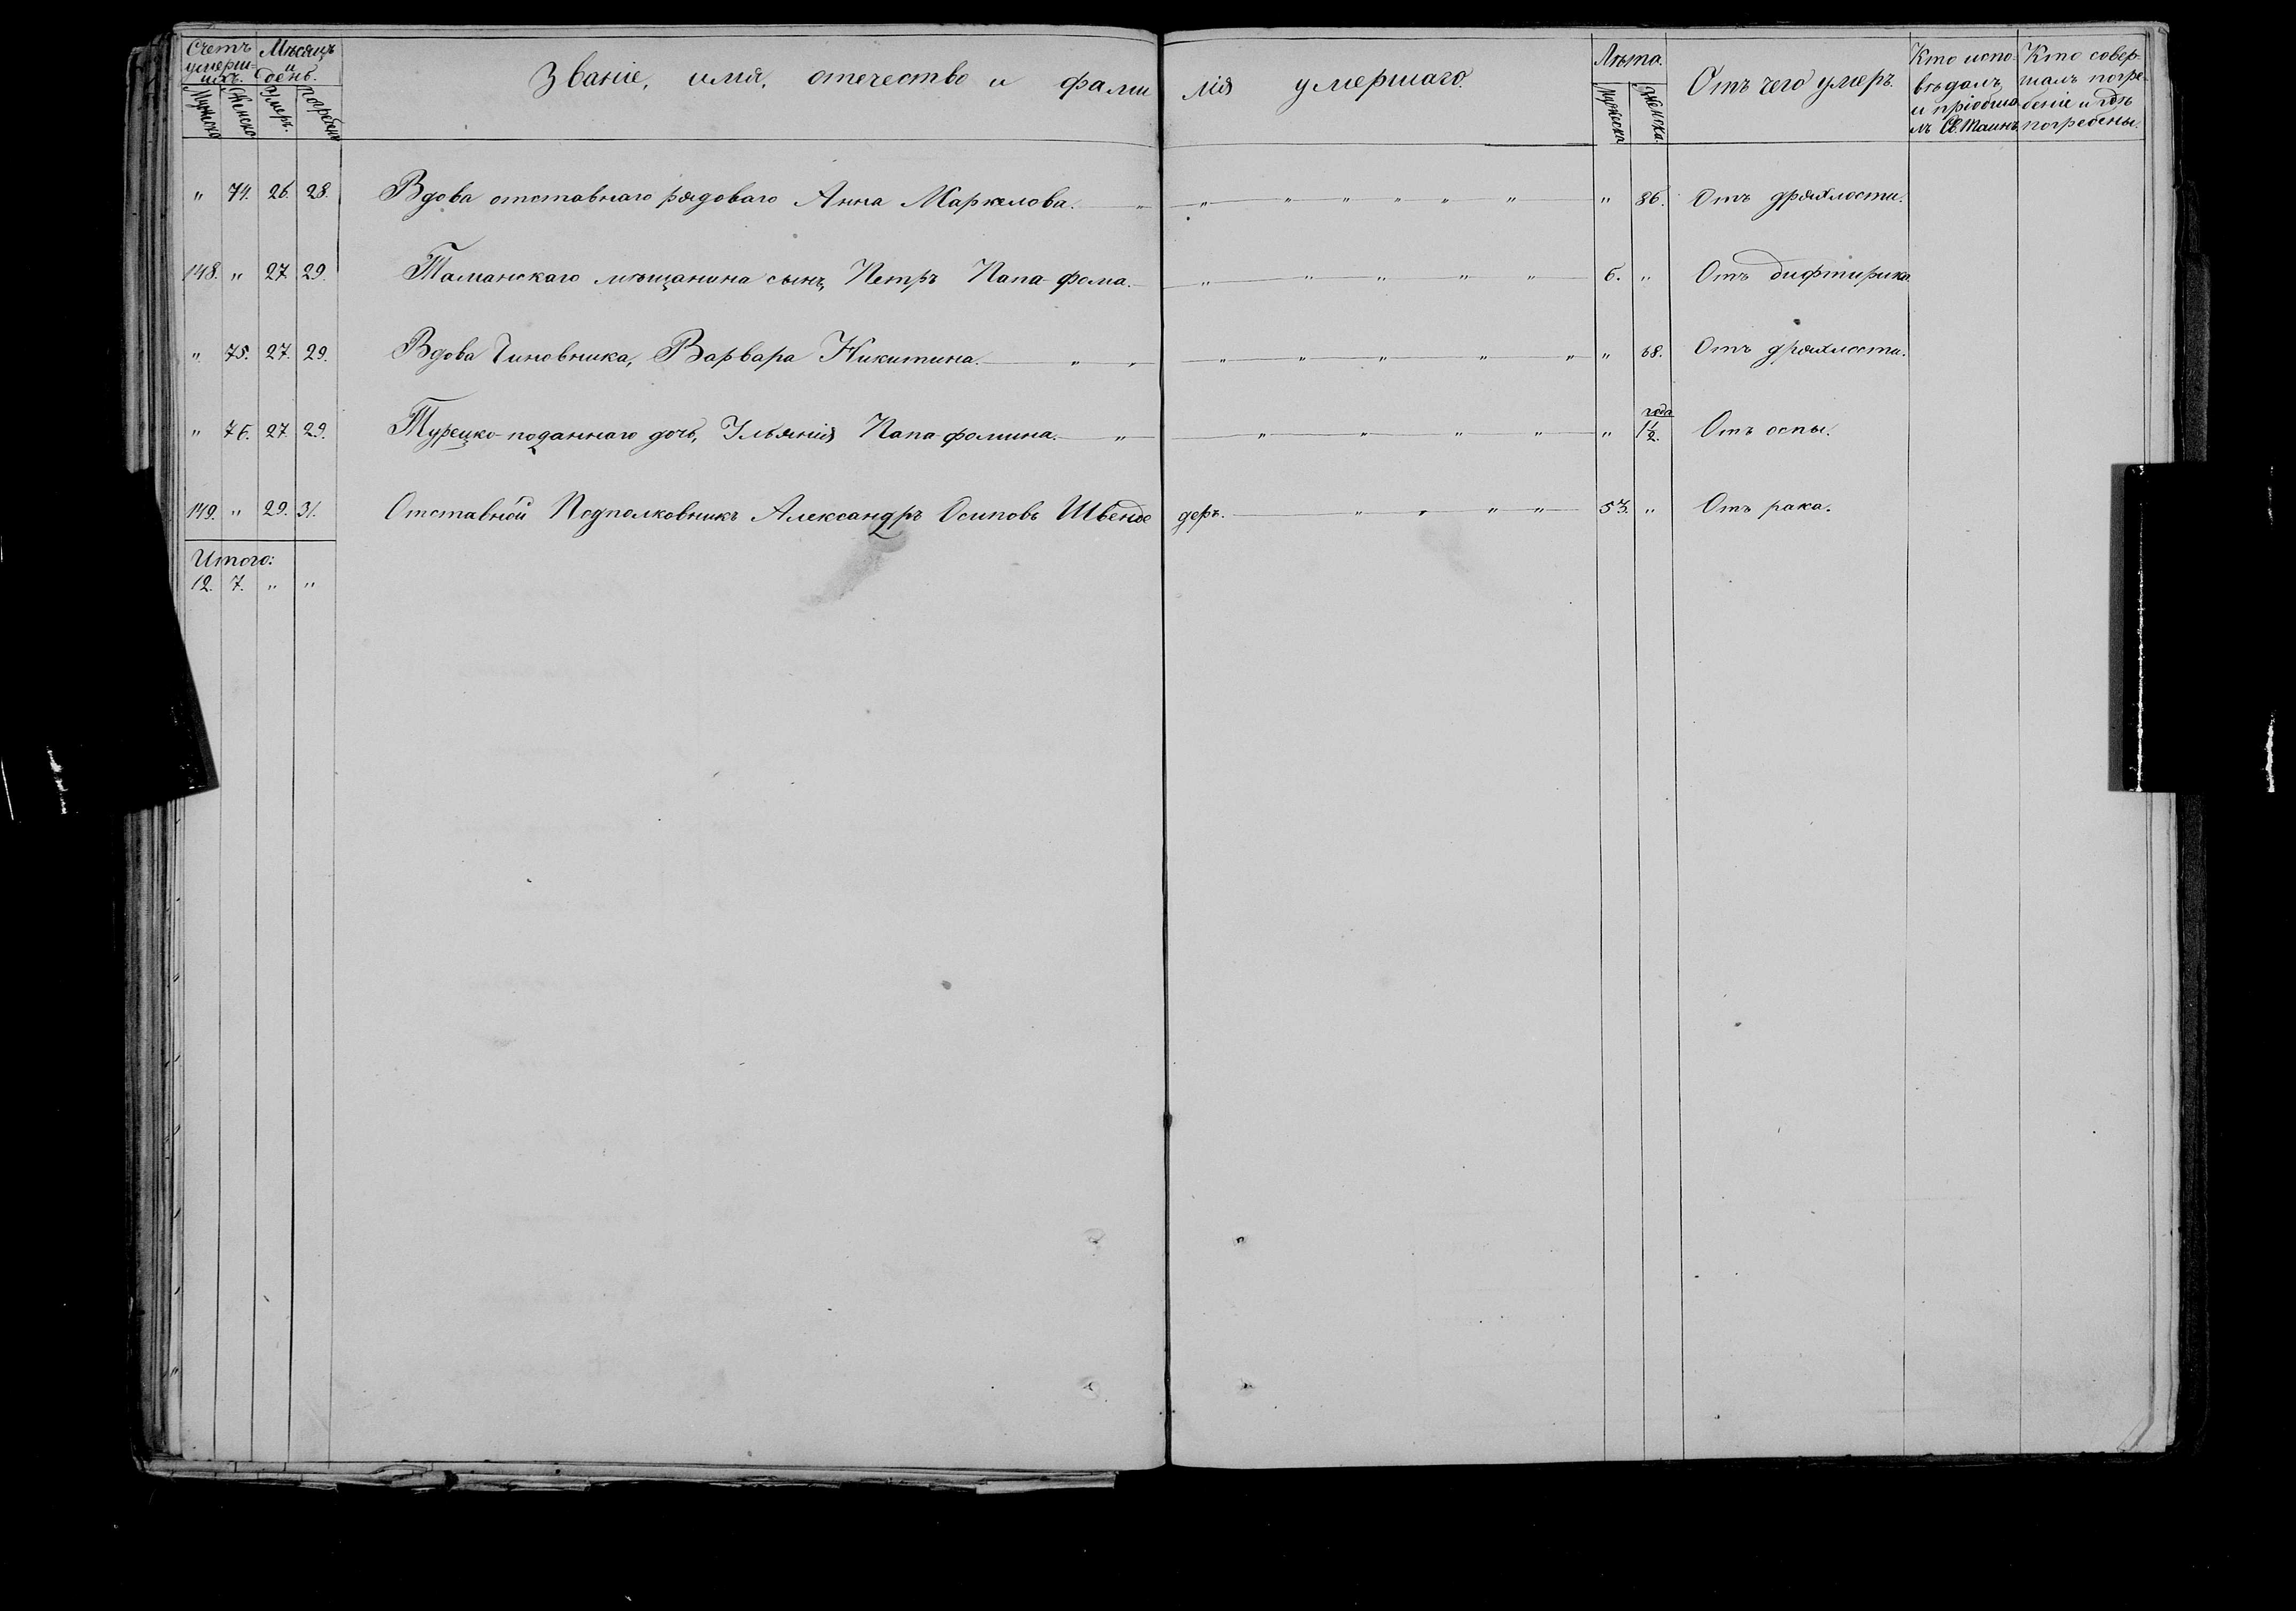 Счетъ умерши-хъ. Мѣсяцъ и день. Званіе, имя, отечество и фамилія умершаго. Лѣта. Отъ чего умеръ. Кто исповѣдалъ и пріобщалъ Св. Таинъ. Кто совершалъ погребеніе и гдѣ погребены.
Мужска Женска Умеръ. Погребенъ Мужска Женска.
" 74. 26. 28. Вдова отставнаго рядоваго Анна Маркелова. " " " " " " " " 86. Отъ дряхлости.
148. " 27. 29. Таманскаго мѣщанина сынъ, Петръ Папа-фома. " " " " " 6. " Отъ дифтерика
" 75. 27. 29. Вдова Чиновника, Варвара Никитина. " " " " " " " " 68. Отъ дряхлости.
" 76. 27. 29. Турецко-поданнаго дочь, Ульянія Папа-фомина. " " " " " " года 1½. Отъ оспы.
149. " 29. 31. Отставной Подполковникъ Александръ Осиповъ Швендеръ. " " " " 53. " Отъ рака.
Итого:
12. 7. " "